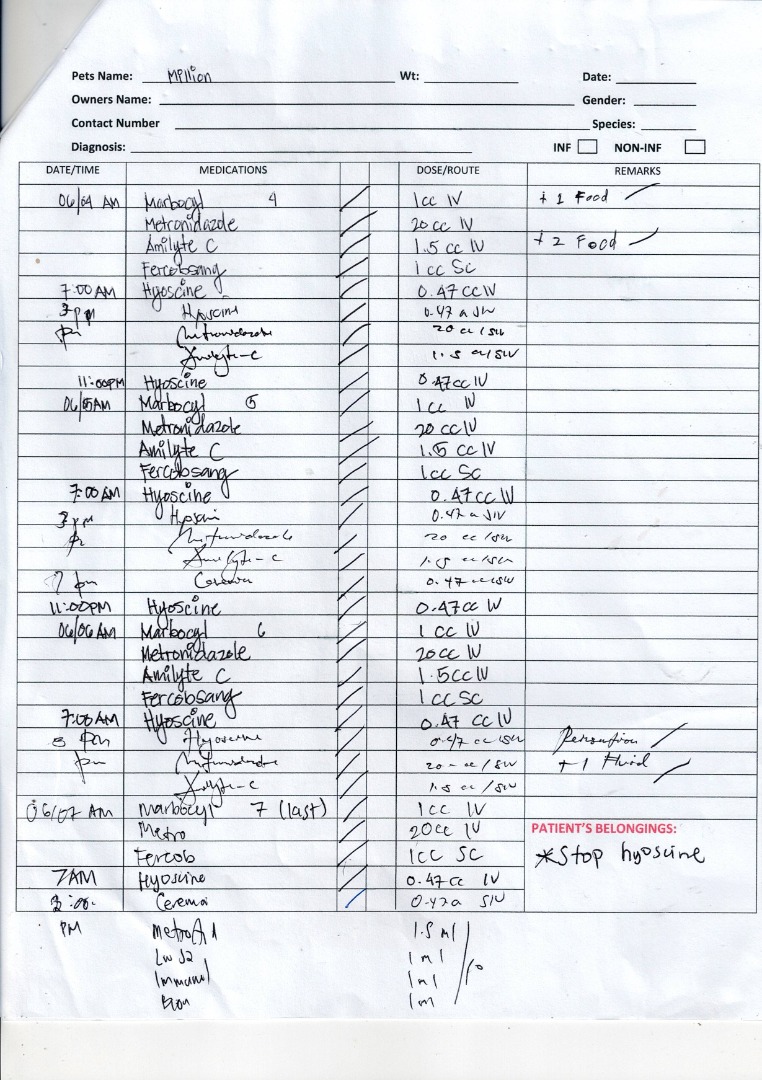 Pets Name: Million Wt: Date:
Owners Name: Gender:
Contact Number Species:
Diagnosis: INF NON-INF
DATE/TIME MEDICATIONS DOSE/ROUTE REMARKS
06/04 AM Marbocyl 4 1cc IV + 1 Food
Metronidazole 20 cc IV
Amilyte C 1.5 cc IV + 2 Food
Fercobsang 1 cc Sc
7:00 AM Hyoscine 0.47 cc IV
3 pm Hyoscine 0.47
pm Metronidazole 20 cc / SIV
Amilyte-C 1.5 cc/SIV
11:00PM Hyoscine 0.47cc IV
06/05AM Marbocyl 5 1cc IV
Metronidazole 20 cc IV
Amilyte C 1.5 cc IV
Fercobsang 1cc Sc
7:00 AM Hyoscine 0.47cc IV
3 pm 0.47
Metronidazole 20 cc/SIV
Amilyte-C 1.5 cc/SIV
7 pm Cerenia 0.47 cc SIV
11:00PM Hyoscine 0.47cc IV
06/06 AM Marbocyl 6 1 cc IV
Metronidazole 20cc IV
Amilyte C 1.5cc IV
Fercobsang 1cc Sc
7:00 AM Hyoscine 0.47 cc IV
3 pm Hyoscine 0.47 cc SIV
pm Metronidazole 20 cc / SIV + 1 Fluid
Amilyte-C 1.5 cc / SIV
06/07 AM Marbocyl 7 (last) 1cc IV
Metro 20cc IV PATIENT'S BELONGINGS:
Fercob 1cc SC *Stop hyoscine
7AM Hyoscine 0.47cc IV
3:00 Cerenia 0.47 SIV
PM 1.5 ml
1 ml
1ml
1m